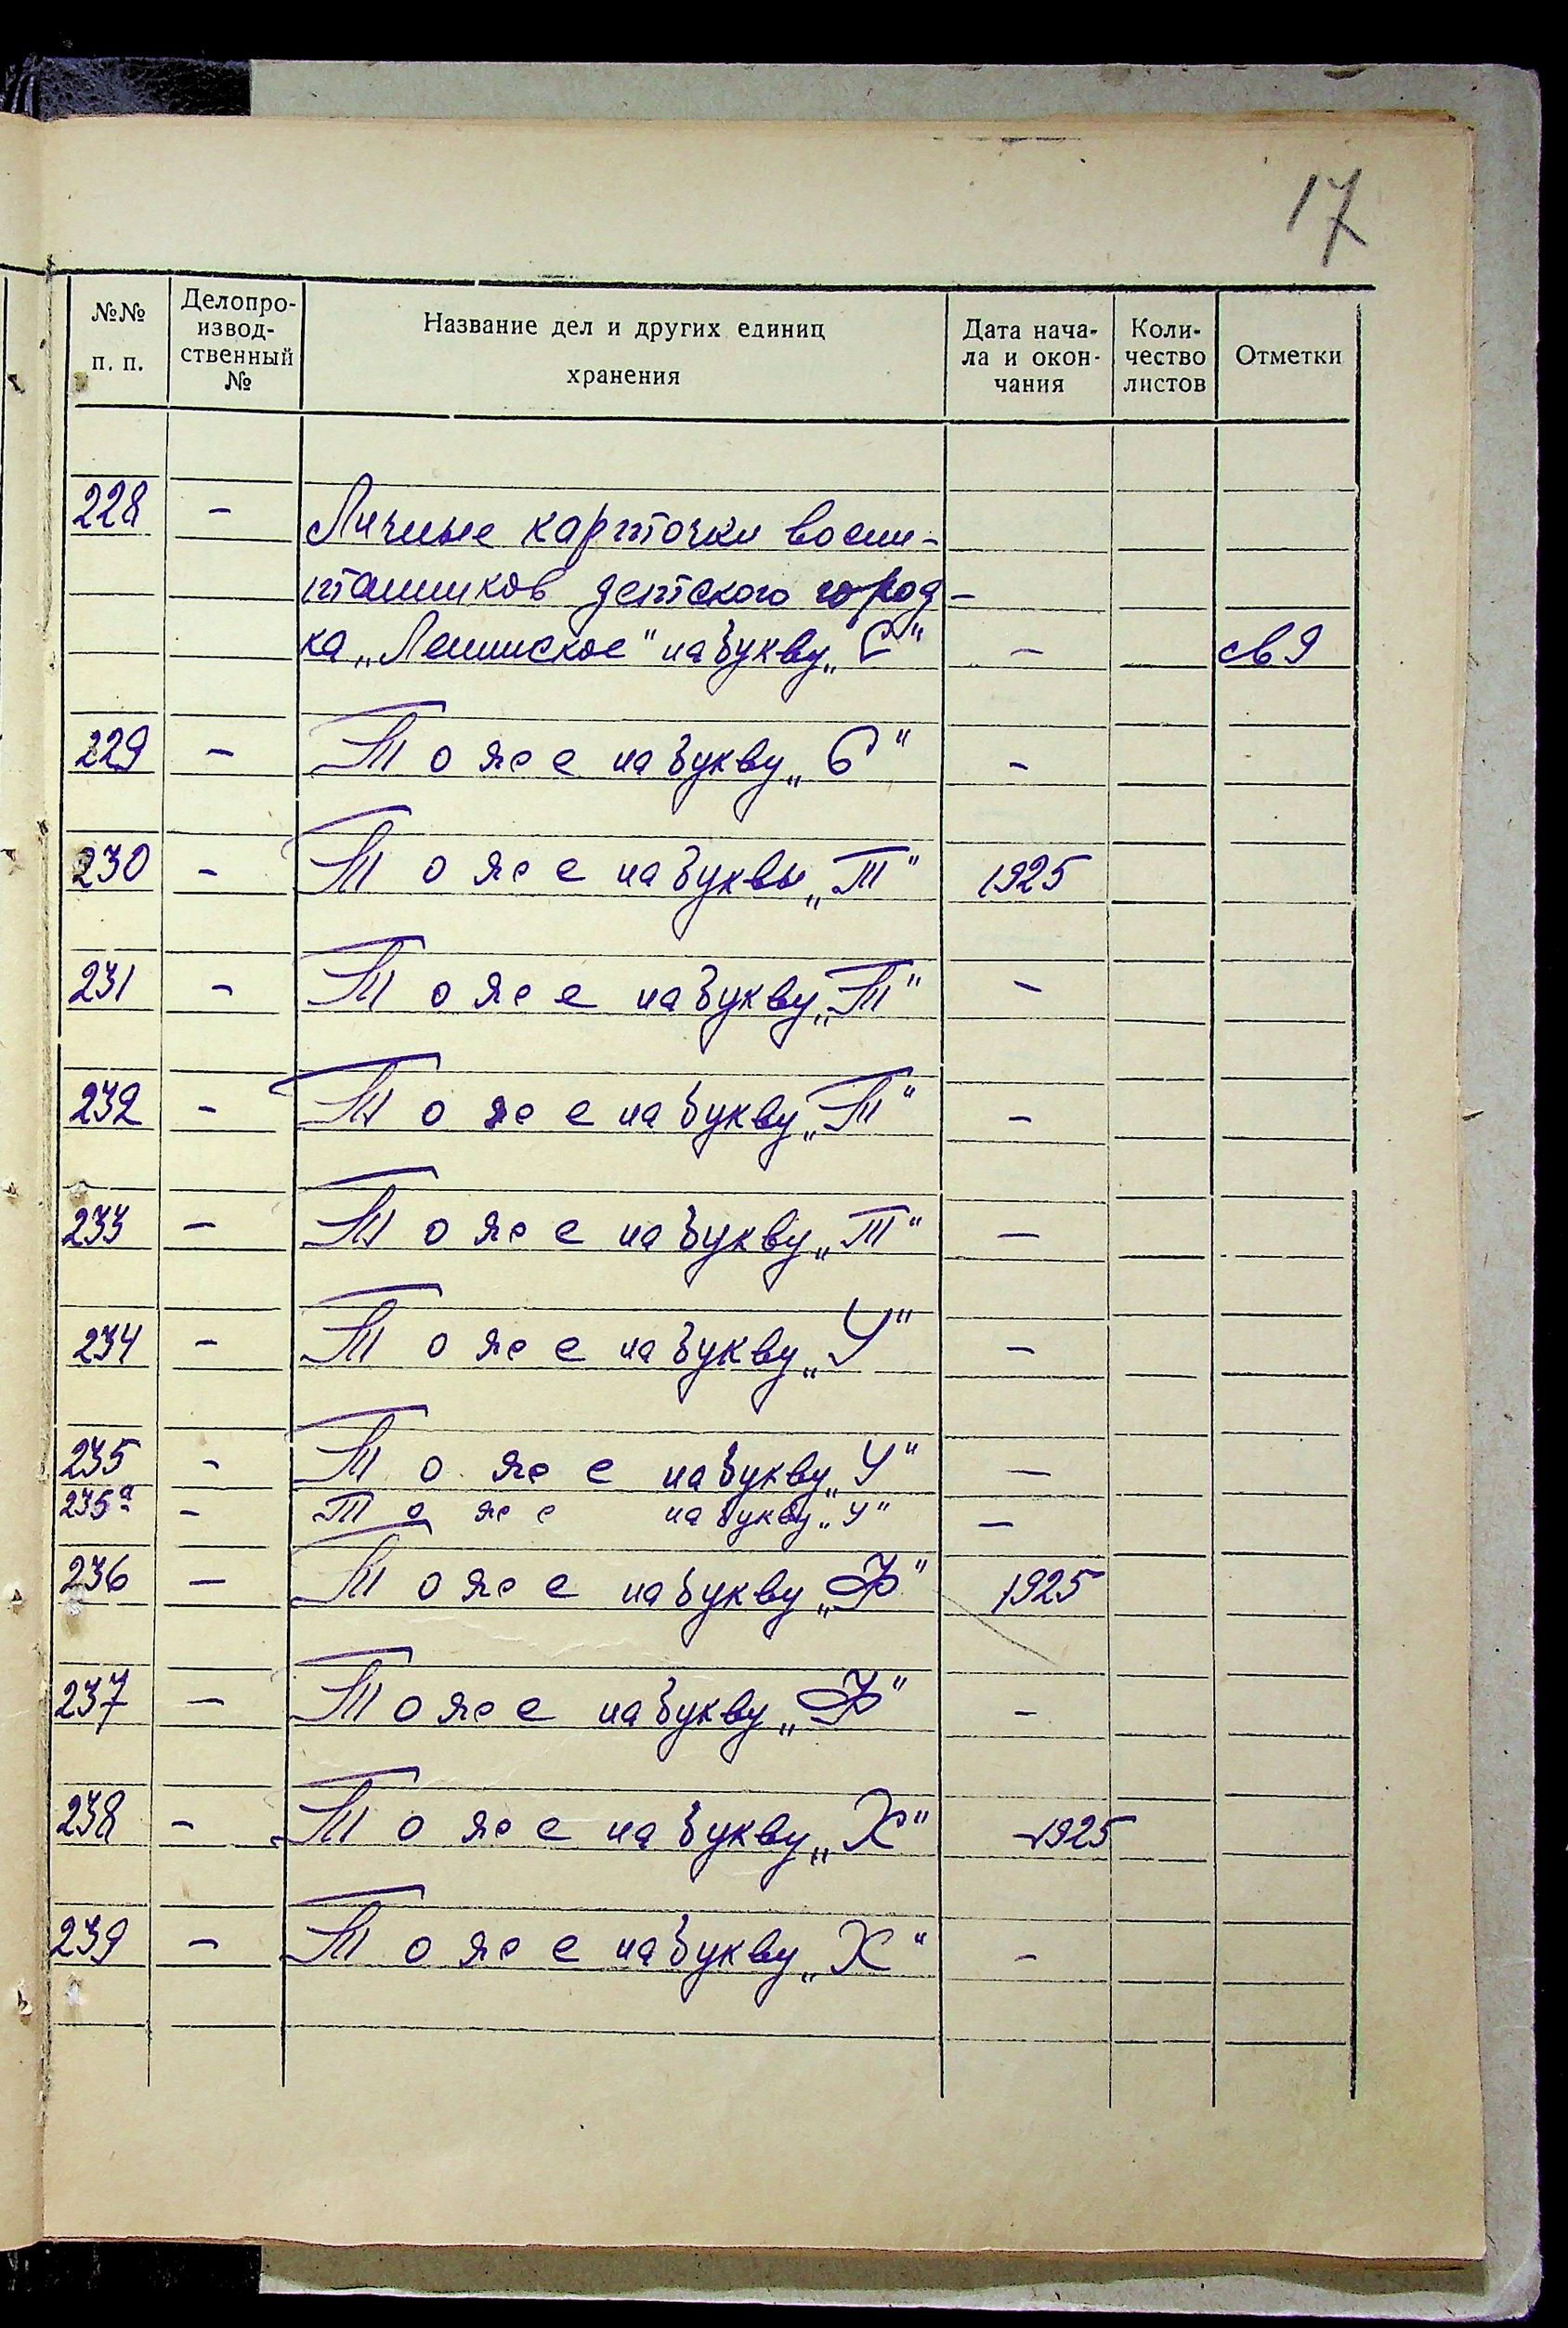 17
№№ п. п.
Делопро-
извод-
ственный
№
Название дел и других единиц
хранения
Дата нача-
ла и окон-
чания
Коли-
чество
листов
Отметки
228 - Личные карточки воспи-
танников детского город-
ка „Ленинское" на букву „С" - св 9
229 - То же на букву „С" -
230 - То же на буквы „Т" 1925
231 - То же на букву „Т" -
232 - То же на букву „Т" -
233 - То же на букву „Т" -
234 - То же на букву „У" -
235 - То же на букву „У" -
235а - То же на букву „У" -
236 - То же на букву „Ф" 1925
237 - То же на букву „Ф" -
238 - То же на букву „Х" 1925
239 - То же на букву „Х" -